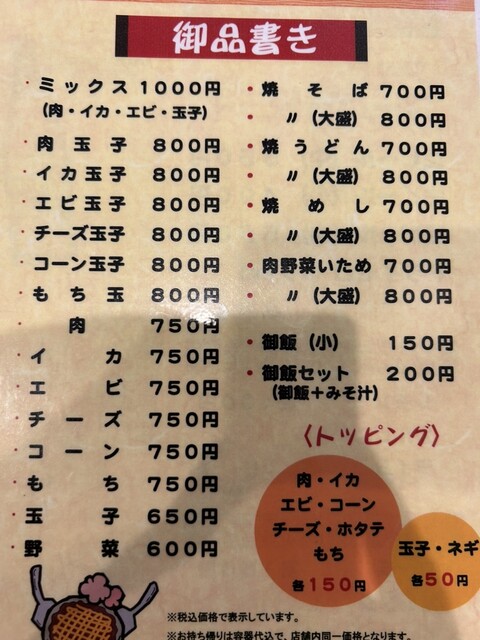 御品書き
・ミックス 1000円
(肉・イカ・エビ・玉子)
・肉玉子 800円
・イカ玉子 800円
・エビ玉子 800円
・チーズ玉子 800円
・コーン玉子 800円
・もち玉 800円
・肉 750円
・イカ 750円
・エビ 750円
・チーズ 750円
・コーン 750円
・もち 750円
・玉子 650円
・野菜 600円
・焼そば 700円
・〃(大盛) 800円
・焼うどん 700円
・〃(大盛) 800円
・焼めし 700円
・〃(大盛) 800円
・肉野菜いため 700円
・〃(大盛) 800円
・御飯(小) 150円
・御飯セット 200円
(御飯+みそ汁)
〈トッピング〉
肉・イカ
エビ・コーン
チーズ・ホタテ
もち
各150円
玉子・ネギ
各50円
※税込価格で表示しています。
※お持ち帰りは容器代込で、店舗内同一価格となります。